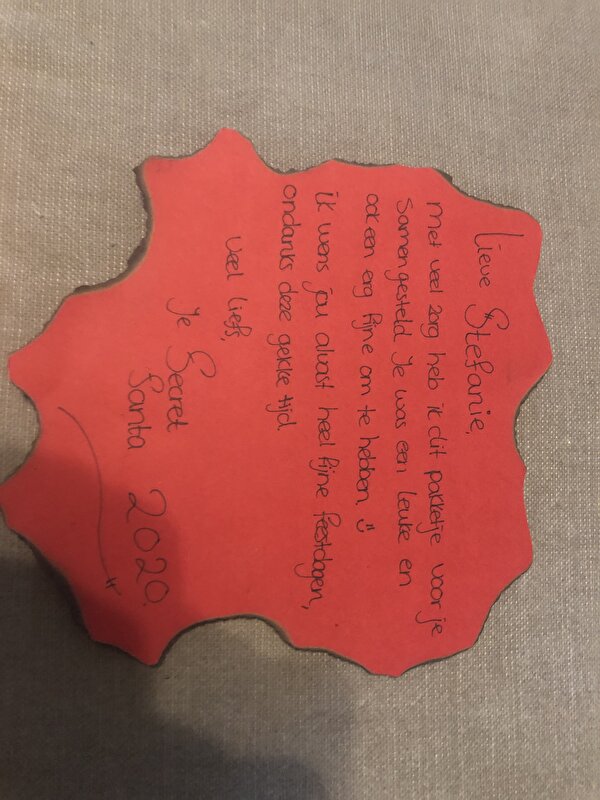 Lieve Stefanie,
Met veel zorg heb ik dit pakketje voor je
samengesteld. Je was een leuke en
ook een erg fijne om te hebben. ü
Ik wens jou alvast heel fijne feestdagen,
ondanks deze gekke tijd.
Veel liefs,
Je Secret
Santa 2020.